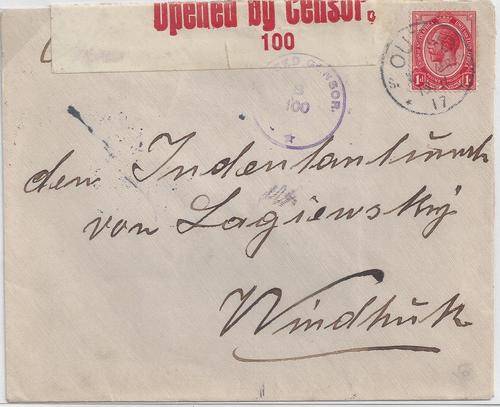 Opened by Censor.
100
CENSOR.
100
OU
17
1d 1d
den Indentanturrat
von Lagiewsky
Windhuk